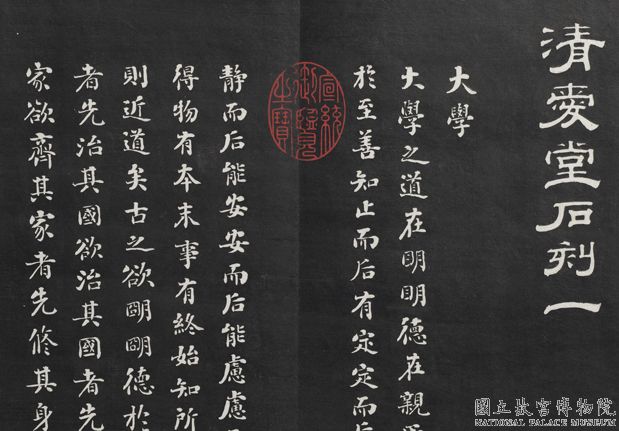 清愛堂石刻一
大學
大學之道在眀眀德在親
於至善知止而后有定定而后
宣統御覽之寶
靜而后能安安而后能慮慮
得物有本末事有終始知所
則近道矣古之欲朙朙德於
者先治其國欲治其國者先
家欲齊其家者先修其身
國立故宮博物院
NATIONAL PALACE MUSEUM